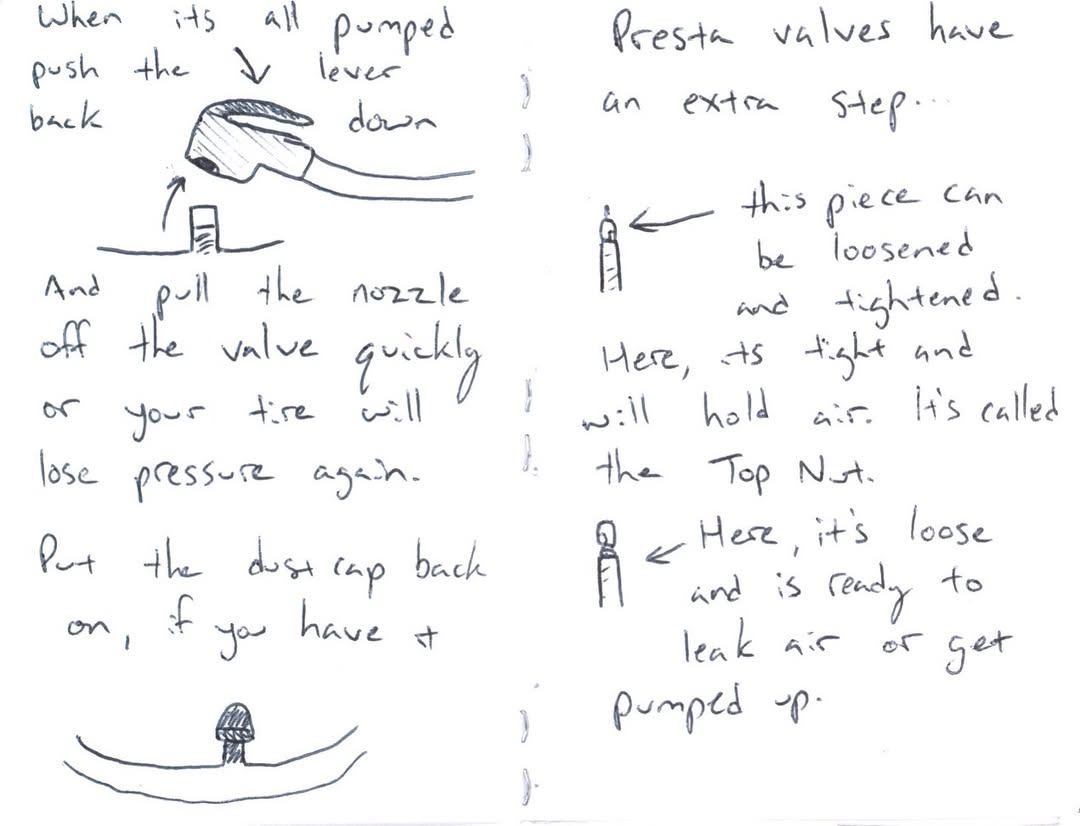 When its all pumped
push the lever
back down
And pull the nozzle
off the valve quickly
or your tire will
lose pressure again.
Put the dust cap back
on, if you have it
Presta valves have
an extra step...
this piece can
be loosened
and tightened.
Here, its tight and
will hold air. It's called
the Top Nut.
Here, it's loose
and is ready to
leak air or get
pumped up.